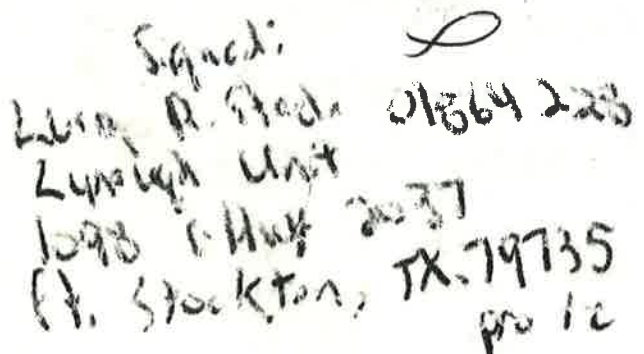 Signed:
R. 01864228
Lynaugh Unit
1098 S. Hwy 2037
Ft. Stockton, TX. 79735
pro se